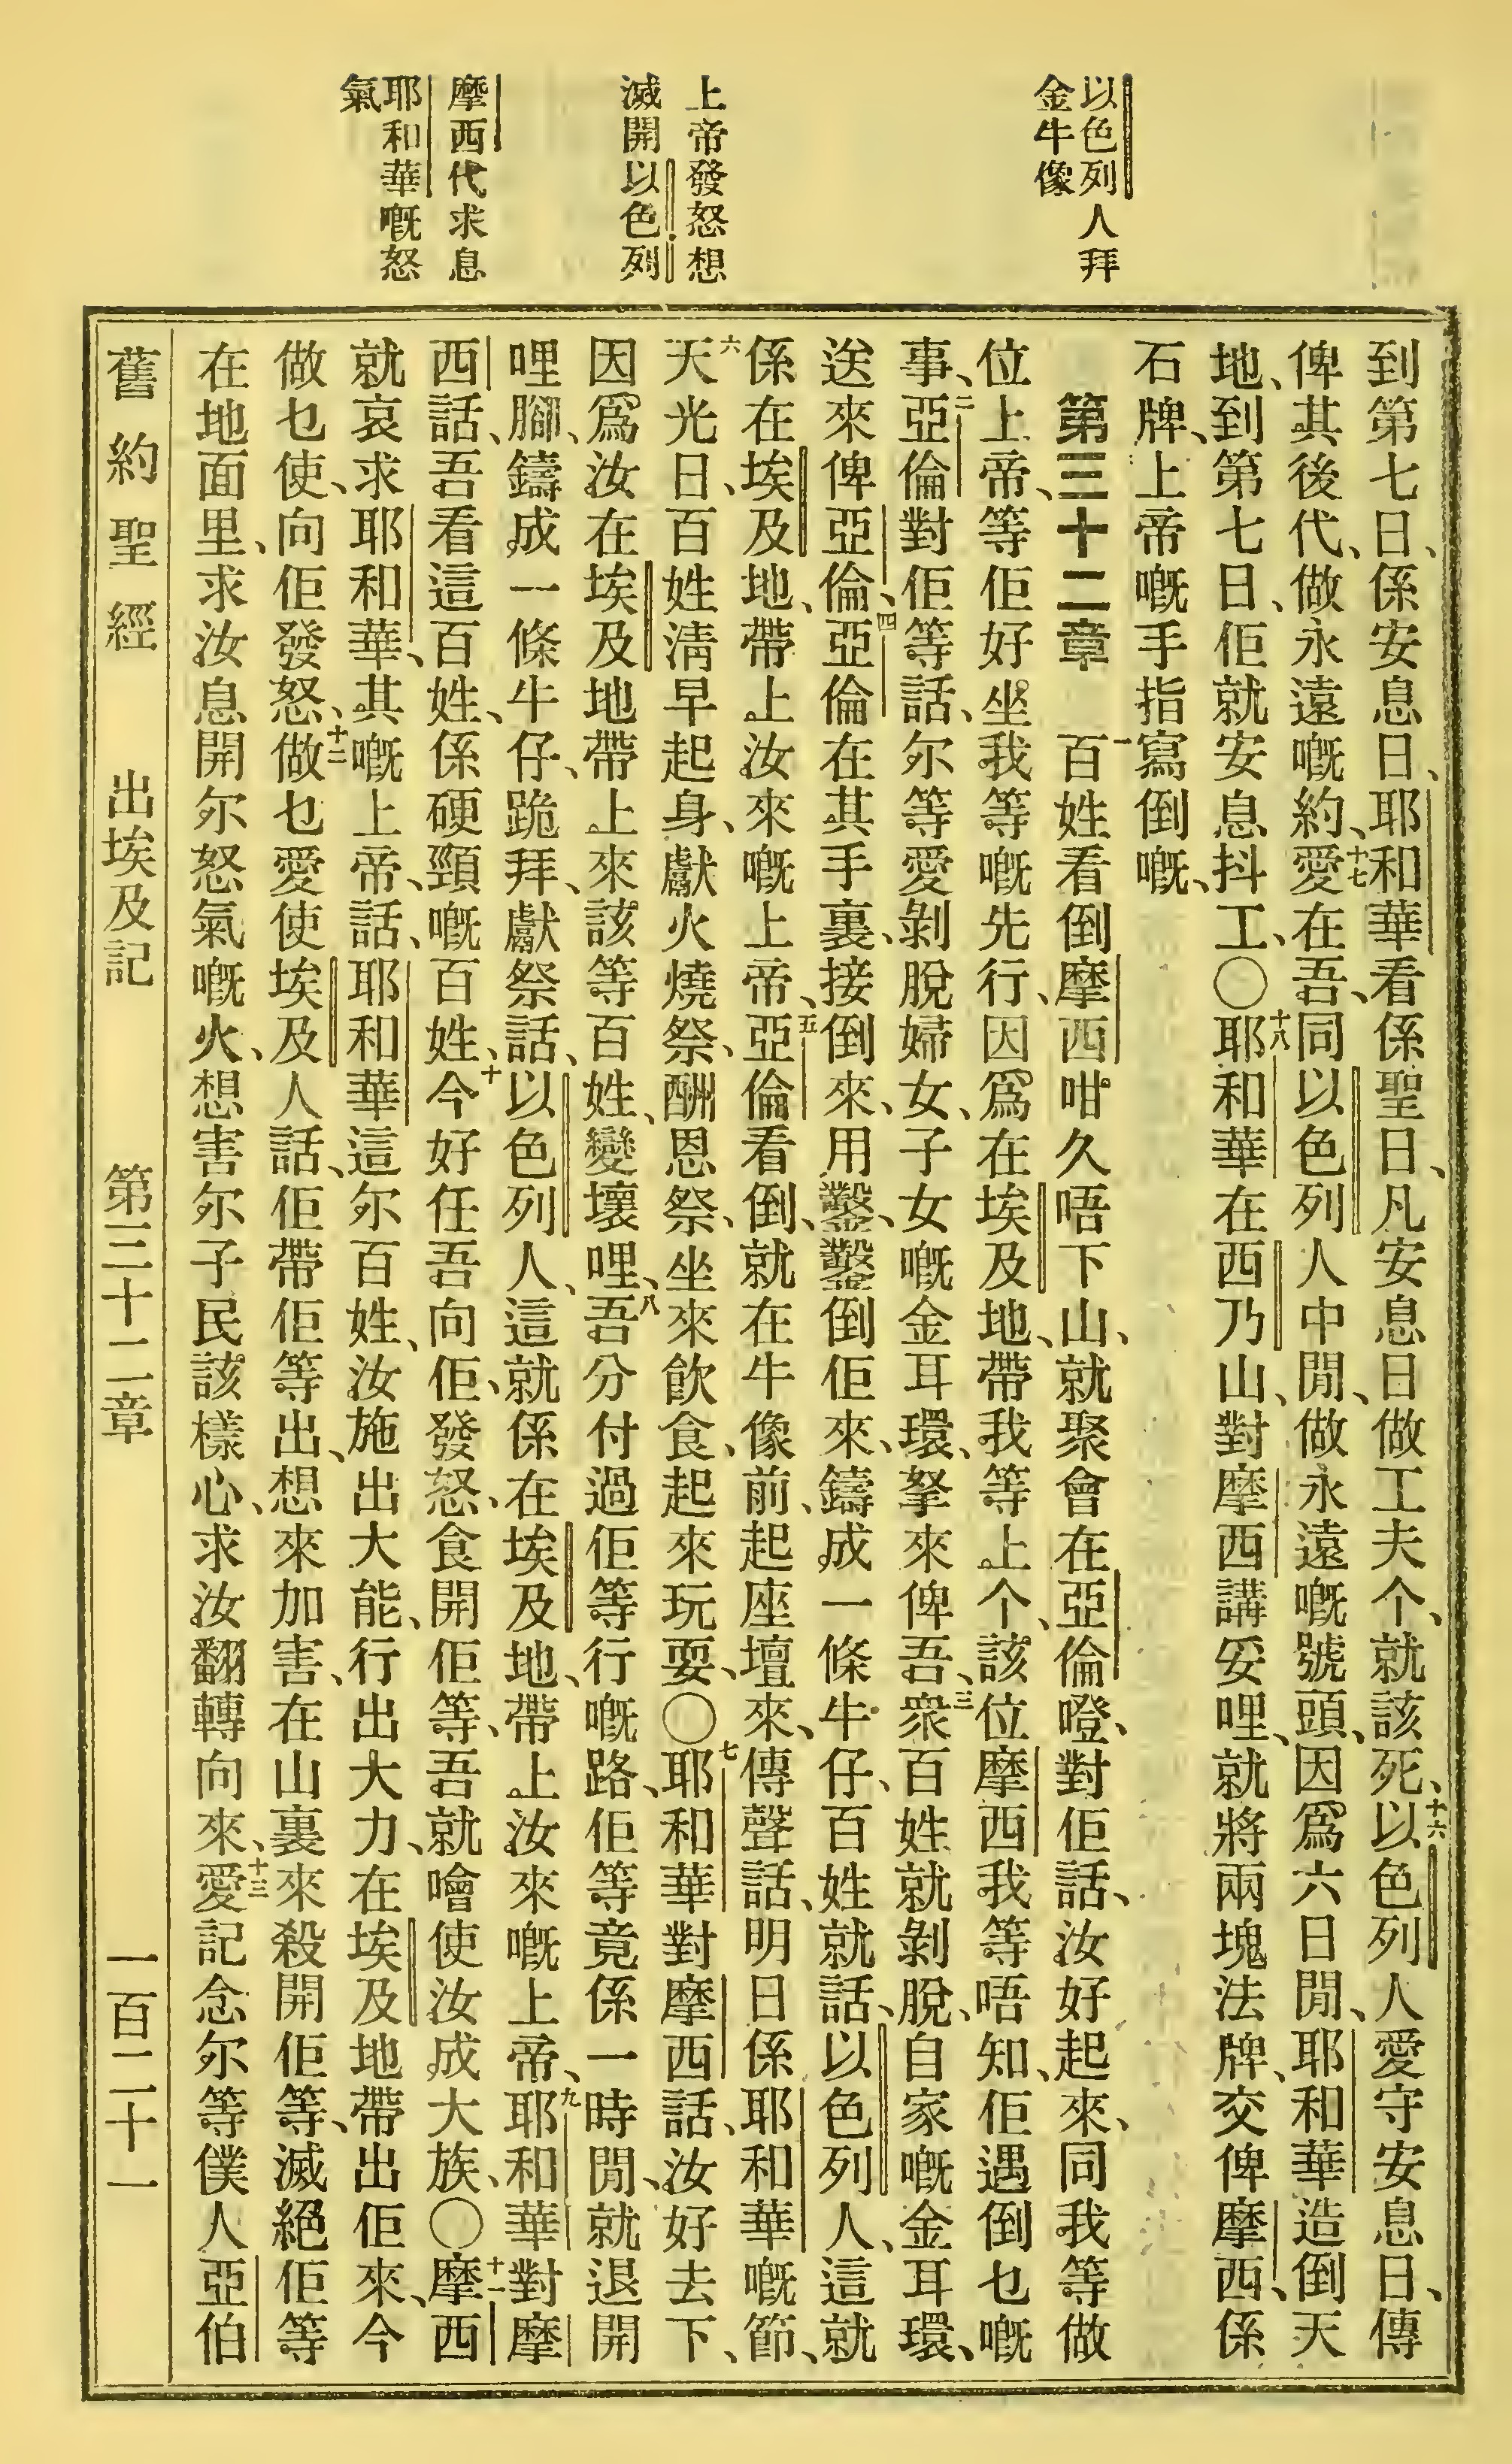 以色列人拜
金牛像
上帝發怒想
滅開以色列
摩西代求息
耶和華嘅怒
氣
到第七日、係安息日、耶和華看係聖日、凡安息日做工夫个、就該死、十六以色列人愛守安息日、傳
俾其後代、做永遠嘅約、十七愛在吾、同以色列人中閒、做永遠嘅號頭、因爲六日閒、耶和華造倒天
地、到第七日、佢就安息抖工、〇十八耶和華在西乃山、對摩西講妥哩、就將兩塊法牌、交俾摩西、係
石牌、上帝嘅手指寫倒嘅、
第三十二章 一百姓看倒摩西咁久唔下山、就聚會在亞倫嶝、對佢話、汝好起來、同我等做
位上帝、等佢好坐我等嘅先行、因爲在埃及地、帶我等上个、該位摩西我等唔知、佢遇倒乜嘅
事、二亞倫對佢等話、尔等愛剝脫婦女、子女嘅金耳環、拏來俾吾、三衆百姓就剝脫、自家嘅金耳環、
送來俾亞倫、四亞倫在其手裏、接倒來、用鑿、鑿倒佢來、鑄成一條牛仔、百姓就話、以色列人、這就
係在埃及地、帶上汝來嘅上帝、五亞倫看倒、就在牛像前、起座壇來、傳聲話、明日係耶和華嘅節、
六天光日、百姓淸早起身、獻火燒祭、酬恩祭、坐來飮食、起來玩耍、〇七耶和華對摩西話、汝好去下、
因爲汝在埃及地帶上來該等百姓、變壞哩、八吾分付過佢等行嘅路、佢等竟係一時閒、就退開
哩、鑄成一條牛仔、跪拜、獻祭話、以色列人、這就係在埃及地、帶上汝來嘅上帝、九耶和華對摩
西話、吾看這百姓、係硬頸嘅百姓、十今好任吾向佢、發怒、食開佢等、吾就噲使汝成大族、〇十一摩西
就哀求耶和華、其嘅上帝、話、耶和華這尔百姓、汝施出大能、行出大力、在埃及地帶出佢來、今
做乜使、向佢發怒、十二做乜愛使埃及人話、佢帶佢等出、想來加害、在山裏來殺開佢等、滅絕佢等
在地面里、求汝息開尔怒氣嘅火、想害尔子民該樣心、求汝翻轉向來、十三愛記念尔等僕人亞伯
舊約聖經 出埃及記 第三十二章 一百二十一